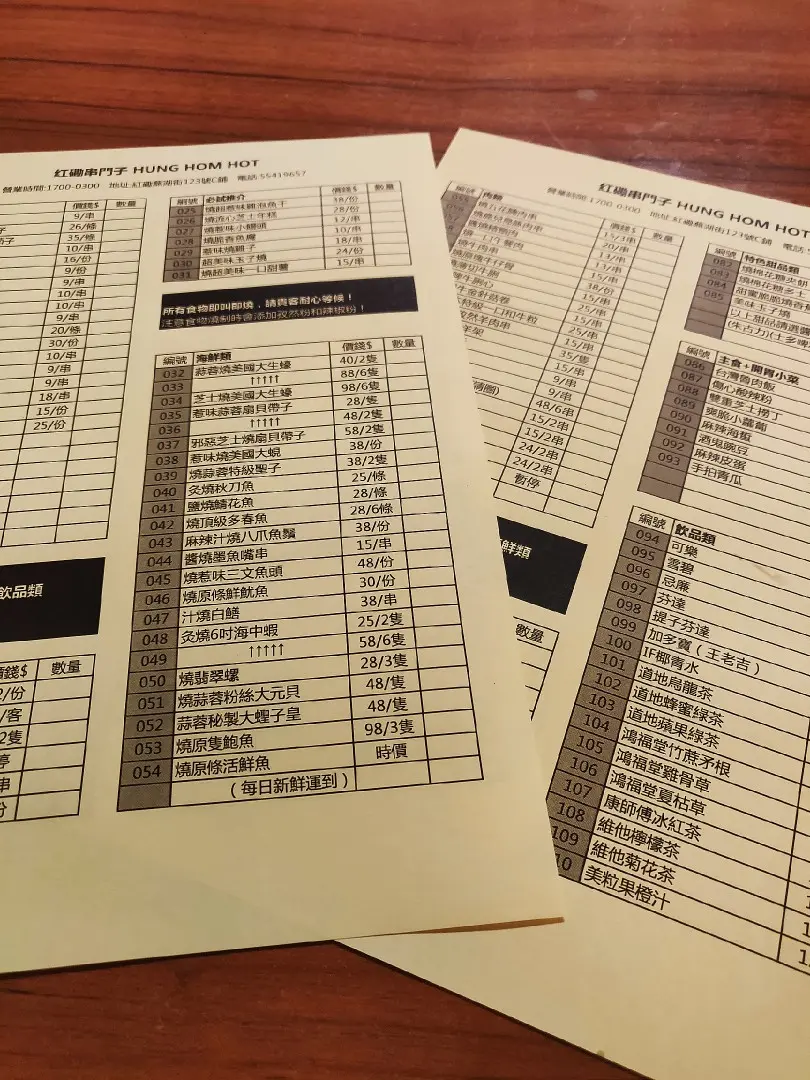 紅磡串門子 HUNG HOM HOT
營業時間:1700-0300 地址:紅磡蕪湖街123號C鋪 電話:55419657
價錢$ 數量
9/串
26/條
35/條
10/串
16/份
9/份
9/串
10/串
10/串
9/串
20/條
30/份
10/串
9/串
9/串
18/串
15/份
25/份
飲品類
價錢$ 數量
/份
/客
2隻
編號 必試推介 價錢$ 數量
025 38/份
026 燒流心芝士年糕 28/份
027 燒惹味小饅頭 12/串
028 燒脆香魚腐 10/串
029 惹味燒韃子 18/串
030 超美味玉子燒 24/份
031 燒超美味一口甜薯 15/串
所有食物即叫即燒，請貴客耐心等候！
注意食物燒制時會添加孜然粉和辣椒粉！
編號 海鮮類 價錢$ 數量
032 蒜蓉燒美國大生蠔 40/2隻
033 ↑↑↑↑↑ 88/6隻
034 芝士燒美國大生蠔 98/6隻
035 惹味蒜蓉扇貝帶子 28/隻
036 ↑↑↑↑↑ 48/2隻
037 邪惡芝士燒扇貝帶子 58/2隻
038 惹味燒美國大蜆 38/份
039 燒蒜蓉特級聖子 38/2隻
040 炙燒秋刀魚 25/條
041 鹽燒鯖花魚 28/條
042 燒頂級多春魚 28/6條
043 麻辣汁燒八爪魚鬚 38/份
044 醬燒墨魚嘴串 15/串
045 燒惹味三文魚頭 48/份
046 燒原條鮮魷魚 30/份
047 汁燒白鱔 38/串
048 炙燒6吋海中蝦 25/2隻
049 ↑↑↑↑↑ 58/6隻
050 燒翡翠螺 28/3隻
051 燒蒜蓉粉絲大元貝 48/隻
052 蒜蓉秘製大蟶子皇 48/隻
053 燒原隻鮑魚 98/3隻
054 燒原條活鮮魚 時價
（每日新鮮運到）
紅磡串門子 HUNG HOM HOT
營業時間:1700-0300 地址:紅磡蕪湖街123號C鋪 電話:5
編號 肉類 價錢$ 數量
15/3串
20/串
13/串
13/串
15/串
38/份
15/串
25/串
15/串
25/串
15/串
35/隻
15/串
9/串
9/串
48/6串
15/2串
15/2串
24/2串
24/2串
暫停
海鮮類
數量
編號 特色甜品類
083
084 燒棉花糖多士
085
美味玉子燒
編號 主食+開胃小菜
086 台灣魯肉飯
087 傷心酸辣粉
088 雙重芝士撈丁
089 爽脆小蘿蔔
090 麻辣海蜇
091 酒鬼豌豆
092 麻辣皮蛋
093 手拍青瓜
編號 飲品類
094 可樂
095 雪碧
096 忌廉
097 芬達
098 提子芬達
099 加多寶（王老吉）
100 IF椰青水
101 道地烏龍茶
102 道地蜂蜜綠茶
103 道地蘋果綠茶
104 鴻福堂竹蔗茅根
105 鴻福堂雞骨草
106 鴻福堂夏枯草
107 康師傅冰紅茶
108 維他檸檬茶
109 維他菊花茶
10 美粒果橙汁